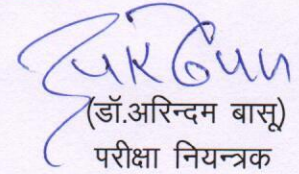 (डॉ.अरिन्दम बासू)
परीक्षा नियन्त्रक